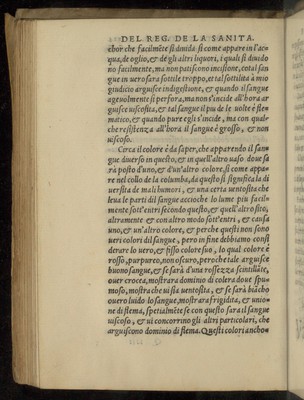 DEL REG. DE LA SANITA.
chor che facilmẽte si diuida si come appare in l'ac
qua, de oglio, & de gli altri liquori, i quali si diuido
no facilmente, ma non patiscono incisione, cotal san
gue in uero sara sottile troppo, et tal sottilità à mio
giudicio arguisce indigestione, & quando il sangue
ageuolmente si perfora, ma non s'incide all'hora ar
guisce uiscosita, & tal sangue il piu de le uolte è fleg
matico, & quando pure egli s'incide, ma con qual-
che resistenza all'hora il sangue è grosso, & non
uiscoso.
Circa il colore è da saper, che apparendo il san-
gue diuerso in questo, & in quell'altro uaso doue sa
rà posto d'uno, & d'un'altro colore, si come appa-
re nel collo de la columba, da questo si significa la di
uersita de mali humori, & una certa uentosita che
leua le parti dil sangue accioche lo lume piu facil-
mente sott'entri secondo questo, & quell'altro sito,
altramente & con altro modo sott'entri, & causa
uno, & un'altro colore, & perche questi non sono
ueri colori dil sangue, pero in fine debbiamo consi
derare lo uero, & fisso colore suo, lo qual colore è
rosso, purpureo, non oscuro, percheтale arguisce
buono sangue, & se sarà d'una rossezza scintillãte,
ouer crocea, mostrara dominio di colera doue spu-
moso, mostra che ui sia uentosita, & se sarà biãcho
ouero luido lo sangue, mostrara frigidita, & unio-
ne di flema, spetialmẽte se con questo sara il sangue
uiscoso, & ui concorrino gli altri particolari, che
arguiscono dominio di flema. Questi colori ancho-